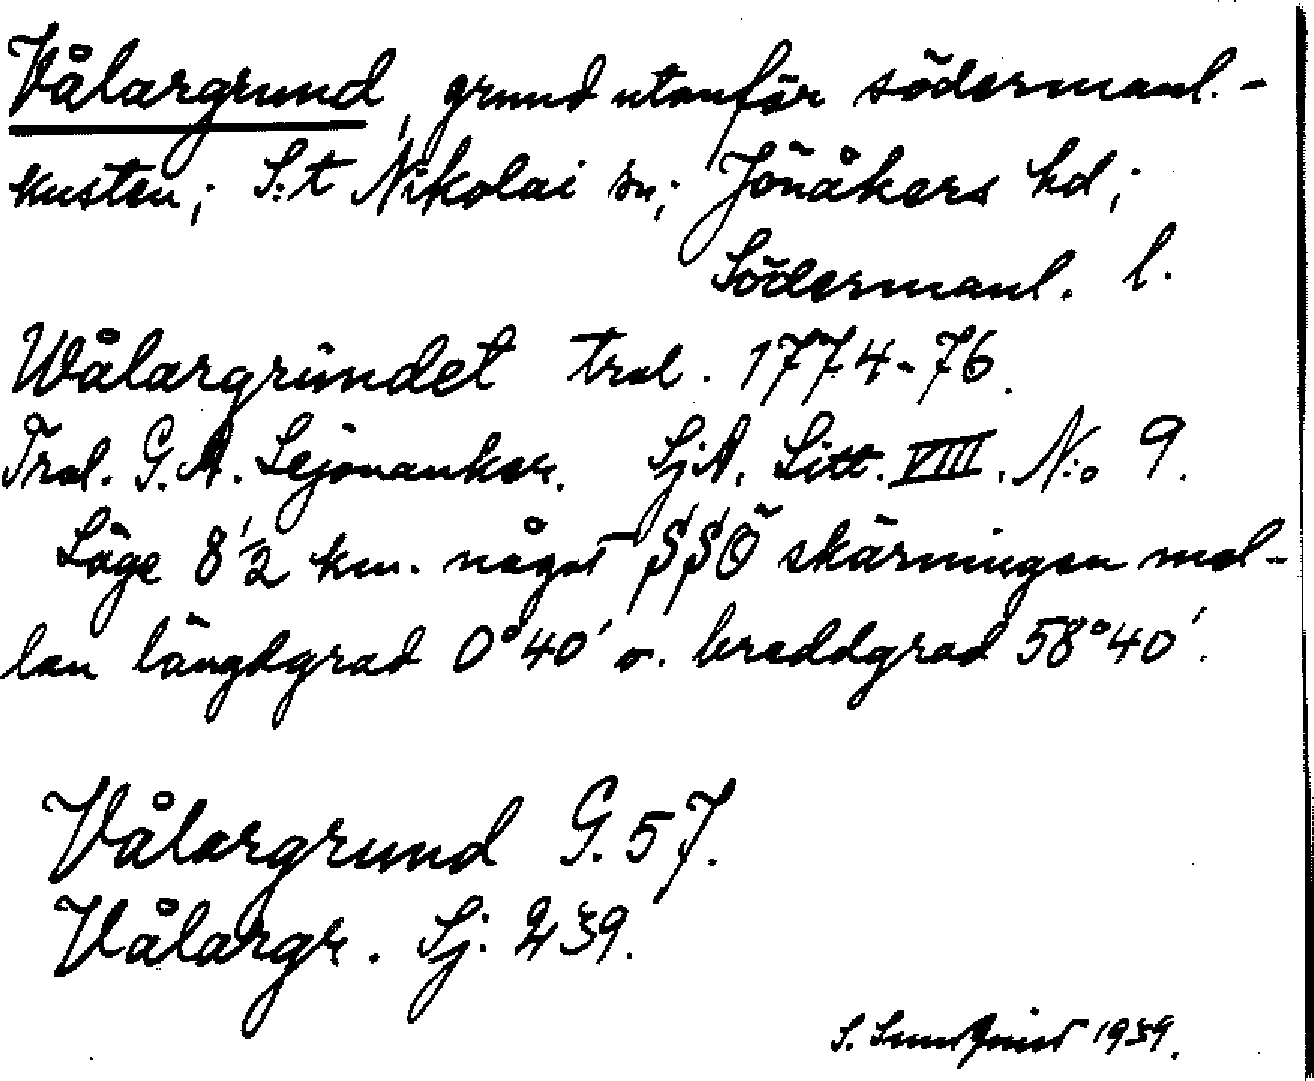 Vålargrund, grund utanför södermanl.-
kusten; S:t Nikolai sn; Jönåkers hd;
Södermanl. l.
Wålargrundet trol. 1774-76.
Trol. G. A. Lejonanker. SjA. Litt. VIII. No 9.
Läge 8 1/2 km. något SSÖ skärningen mel-
lan längdgrad 0°40' o. breddgrad 58°40'.
Vålargrund G. 57.
Vålargr. Sj: 239.
S. 1939.